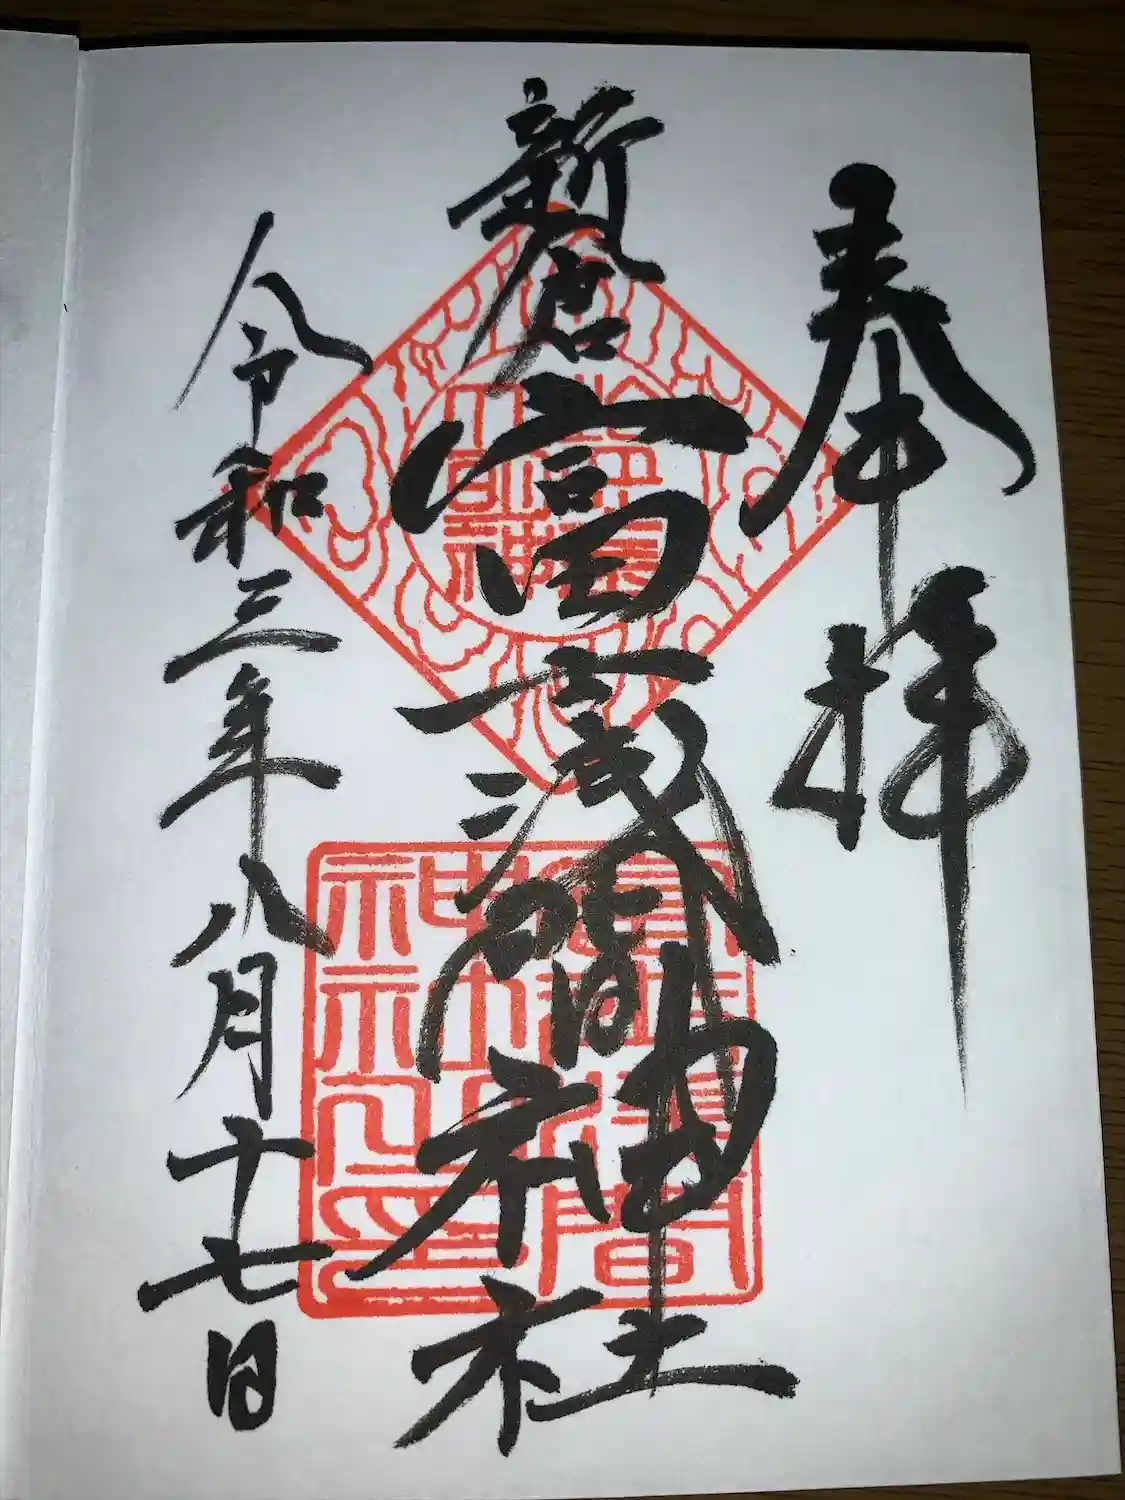 奉拝
新倉富士浅間神社
令和三年八月十七日